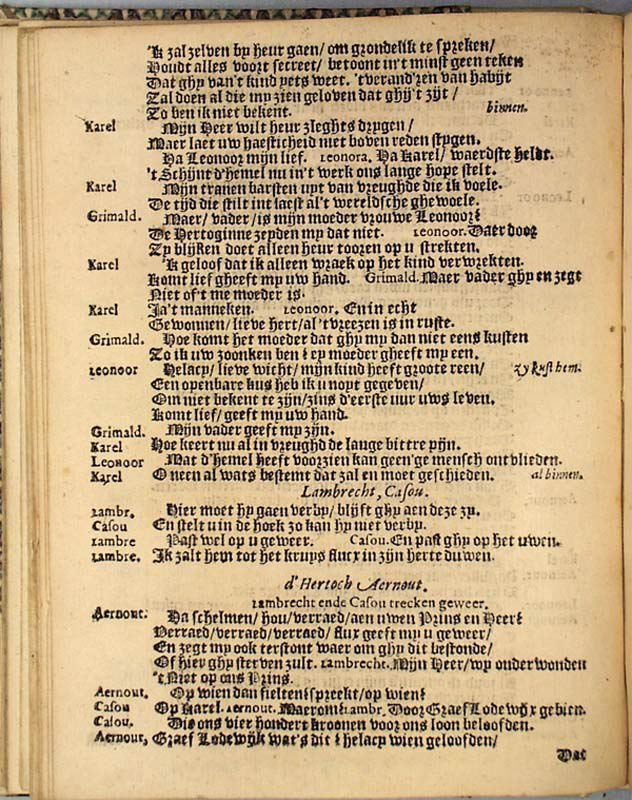 'Ik zal zelven by heur gaen/ om grondelik te spreken/
Houdt alles voort secreet/ betoont in't minst geen teken
Dat ghy van't kind yets weet. 'tverand'ren van habijt
Zal doen al die my zien geloven dat ghy't zijt /
Zo ben ik niet bekent. binnen.
Karel Mijn Heer wilt heur zleghts dzygen /
Maer laet uw haesticheid niet boven reden stygen.
Ha Leonoor mijn lief. Leonora. Ha Karel/ waerdste heldt.
't Schijnt d'hemel nu in't werk ons lange hope stelt.
Karel Mijn tranen barsten uyt van vreughde die ik voele.
De tijd die stilt int laest al't wereldsche ghewoele.
Grimald. Maer/ vader/ is mijn moeder vrouwe Leonoor?
De Hertoginne zeyden my dat niet. Leonoor. Daer door
Zy blijken doet alleen heur tooren op u strekten.
Karel 'k geloof dat ik alleen wraek op het kind verwrekten.
Komt lief gheeft my uw hand. Grimald. Maer vader ghy en zegt
Niet of't me moeder is.
Karel Ja't manneken. Leonoor. En in echt
Gewonnen/ lieve hert/ al 'tvreezen is in ruste.
Grimald. Hoe komt het moeder dat ghy my dan niet eens kusten
Zo ik uw zoonken ben? ey moeder gheeft my een.
Leonoor Helacy/ lieve wicht/ mijn kind heeft groote reen/ zy kust hem.
Een openbare kus heb ik u noyt gegeven/
Om niet bekent te zijn/ zins d'eerste uur uws leven.
Komt lief/ geeft my uw hand.
Grimald. Mijn vader geeft my zijn.
Karel Hoe keert nu al in vreughd de lange bittre pijn.
Leonoor Wat d'hemel heeft voorzien kan geen'ge mensch ontvlieden.
Karel O neen al wats bestemt dat zal en moet geschieden. al binnen.
Lambrecht, Casou.
Lambr. Hier moet hy gaen verby/ blijft ghy aen deze zy.
Casou En stelt u in de hoek zo kan hy niet verby.
Lambre Past wel op u geweer. Casou. En past ghy op het uwen.
Lambre. Ik zalt hem tot het kruys flucx in zijn herte duwen.
d'Hertoch Aernout.
Lambrecht ende Casou trecken geweer.
Aernout: Ha schelmen/ hou/ verraed/ aen uwen Prins en Heer?
Verraed/ verraed/ verraed/ flux geeft my u geweer/
En zegt my ook terstont waer om ghy dit bestonde/
Of hier ghy sterven zult. Lambrecht. Mijn Heer/ wy onderwonden
't Niet op ons Prins.
Aernout, Op wien dan fielten? spreekt/ op wien?
Casou Op Karel. Aernout. Waerom? Lambr. Door Graef Lodewijx gebien.
Casou. Die ons vier hondert kroonen voor ons loon beloofden.
Aernout, Graef Lodewijk wat's dit? helacy wien geloofden/
Dat